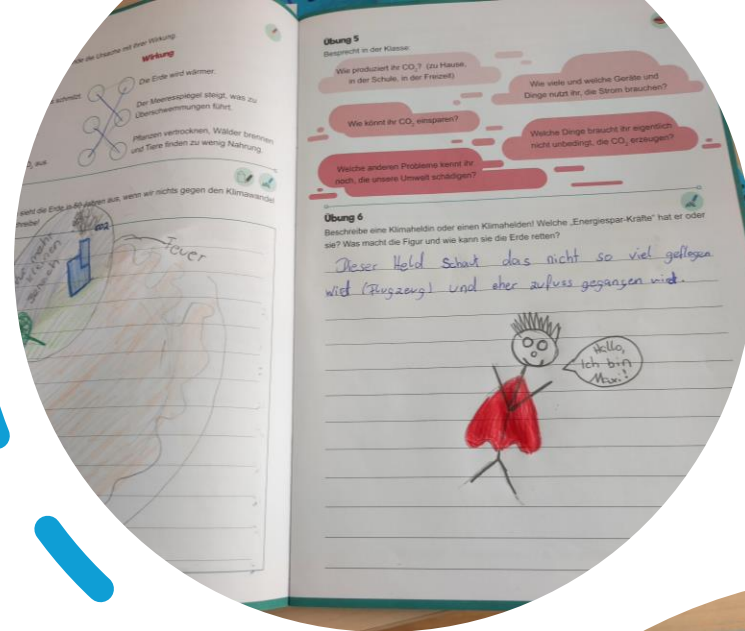 die Ursache mit ihrer Wirkung.
Wirkung
schmilzt
Die Erde wird wärmer.
Der Meeresspiegel steigt, was zu
Überschwemmungen führt.
Pflanzen vertrocknen, Wälder brennen
und Tiere finden zu wenig Nahrung.
aus
sieht die Erde in 50 Jahren aus, wenn wir nichts gegen den Klimawandel
CO2
Feuer
Übung 5
Besprecht in der Klasse:
Wie produziert ihr CO₂? (zu Hause,
in der Schule, in der Freizeit)
Wie viele und welche Geräte und
Dinge nutzt ihr, die Strom brauchen?
Wie könnt ihr CO₂ einsparen?
Welche Dinge braucht ihr eigentlich
nicht unbedingt, die CO₂ erzeugen?
Welche anderen Probleme kennt ihr
noch, die unsere Umwelt schädigen?
Übung 6
Beschreibe eine Klimaheldin oder einen Klimahelden! Welche „Energiespar-Kräfte" hat er oder
sie? Was macht die Figur und wie kann sie die Erde retten?
Dieser Held Schaut das nicht so viel geflogen
wird (Flugzeug) und eher zufuss gegangen wird.
Hallo,
Ich bin
Maxi!